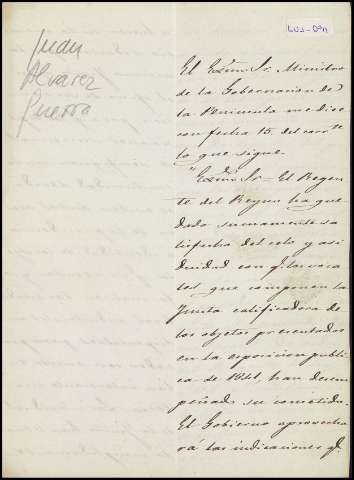 Juan
Alvarez
Guerra
El Exmo Sr. Ministro
de la Gobernacion de
la Peninsula me dice
con fecha 15 del corrte
lo que sigue.
"Exmo Sr. El Regen
te del Reyno ha que
dado sumamente sa
tisfecho del celo y asi
duidad con q. los voca
les que componen la
Junta calificadora de
los objetos presentados
en la esposicion publi
ca de 1841, han desem
peñado su cometido.
El Gobierno aprovecha
rá las indicaciones q.